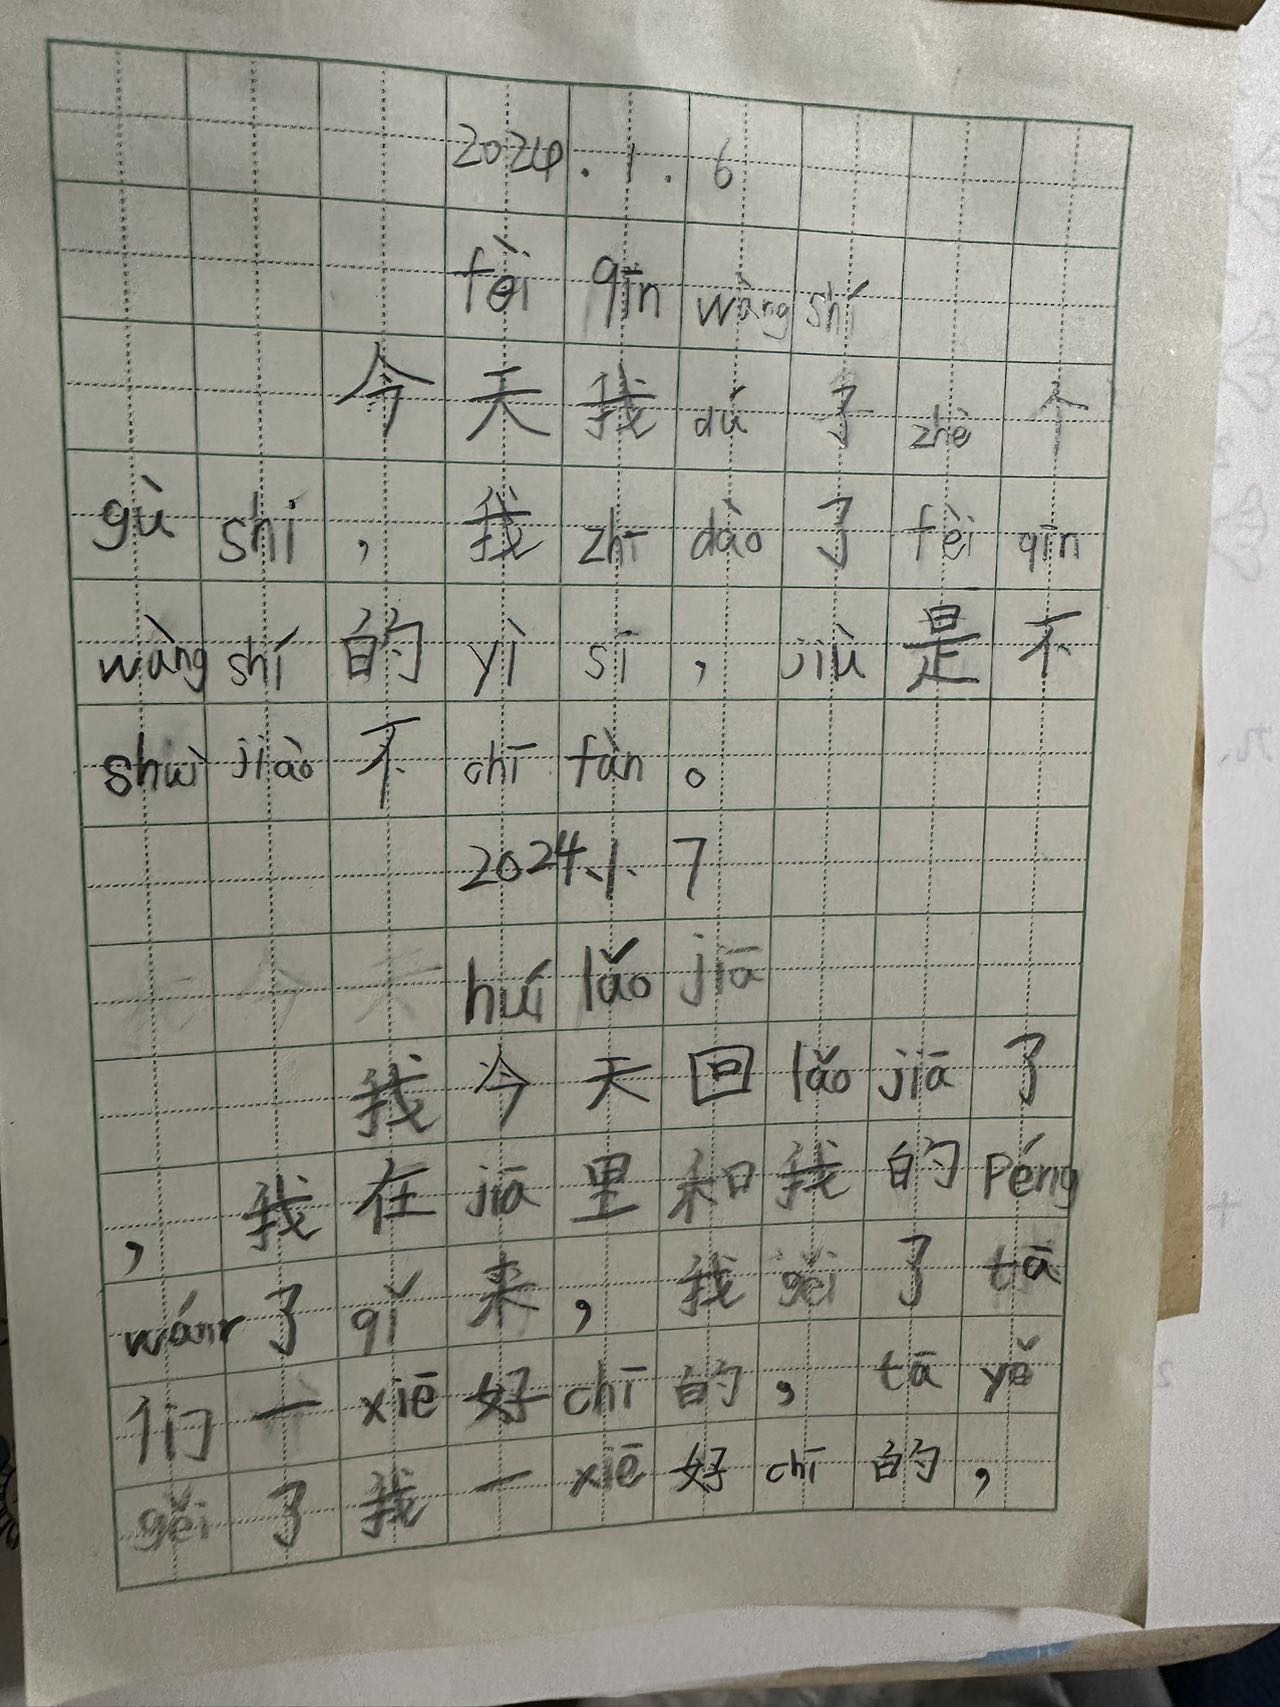 2024.1.6
fèi qǐn wàng shí
今天我dú了zhè个
gù shi，我zhī dào了fèi qīn
wàng shí的yì sī，jiù是不
shuì jiào不chī fàn。
2024.1.7
huí lǎo jiā
我今天回lǎo jiā了
，我在jiā里和我的Péng
wánr了qǐ来，我gěi了tā
们一xiē好chī的，tā yě
gěi了我一xiē好chī的，